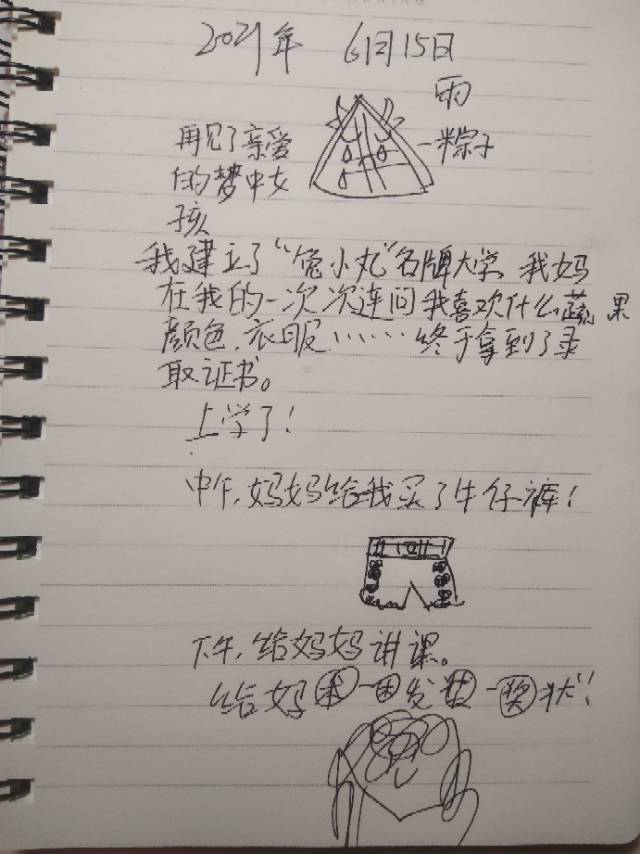 2021年 6月15日
雨
粽子
再见了亲爱
的梦中女
孩
我建立了“兔小丸”名牌大学 我妈
在我的一次次连问我喜欢什么蔬果
颜色、衣服……终于拿到了录
取证书。
上学了!
中午,妈妈给我买了牛仔裤!
下午,给妈妈讲课。
给妈 发 一奖状!